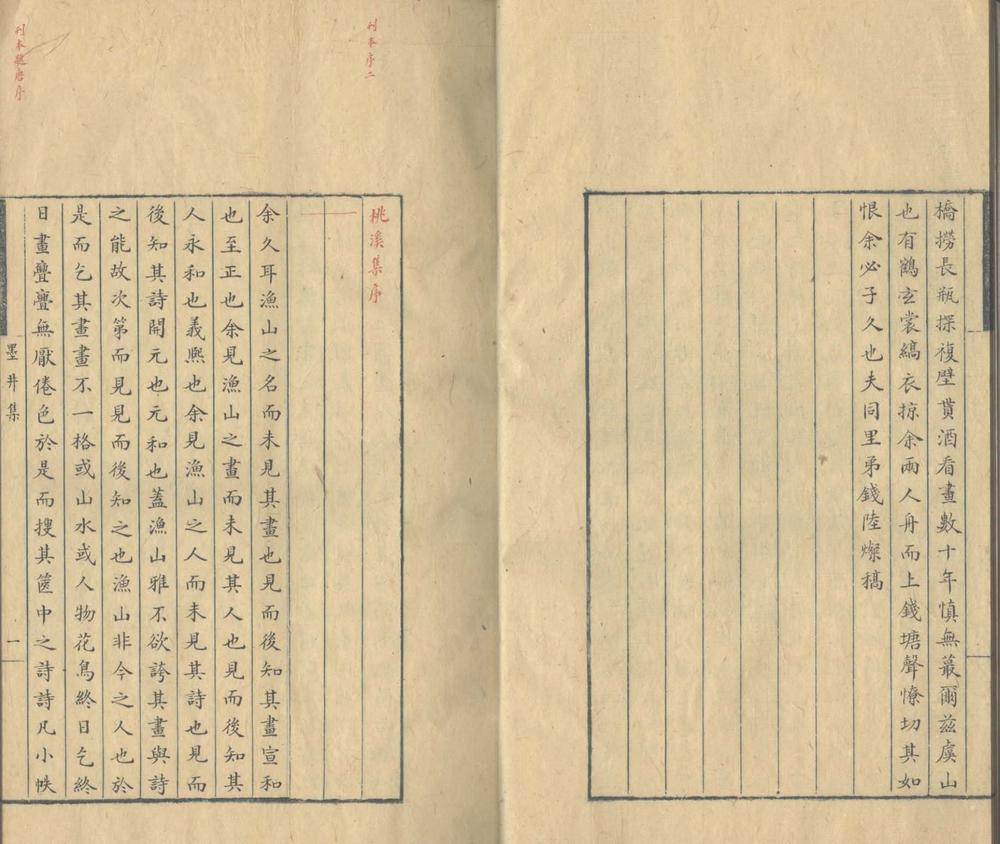 橋撈長瓶探複壁貰酒看畫數十年慎無蕞爾玆虞山
也有鶴玄裳縞衣掠余兩人舟而上錢塘聲憭切其如
恨余必子久也夫同里弟錢陸燦稿
刊本序二
桃溪集序
余久耳漁山之名而未見其畫也見而後知其畫宣和
也至正也余見漁山之畫而未見其人也見而後知其
人永和也義熙也余見漁山之人而未見其詩也見而
後知其詩開元也元和也蓋漁山雅不欲誇其畫與詩
之能故次第而見見而後知之也漁山非今之人也於
是而乞其畫畫不一格或山水或人物花鳥終日乞終
日畫亹亹無厭倦色於是而搜其篋中之詩詩凡小帙
墨井集
一
刊本
序